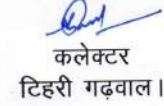 कलेक्टर
टिहरी गढ़वाल।